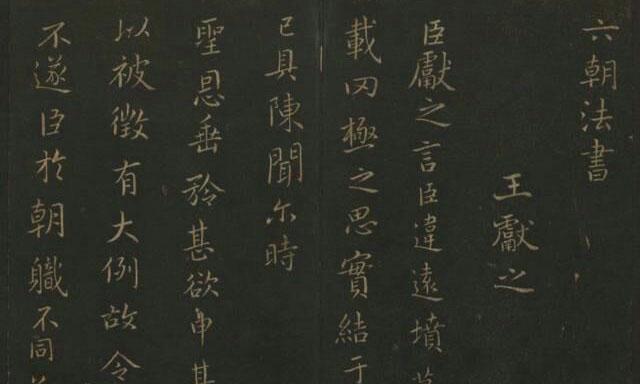 六朝法書
王獻之
臣獻之言臣違遠墳
載罔極之思實結于
已具陳聞尔時
聖恩垂矜甚欲申
以被徵有大例故令
不遂臣於朝職不同